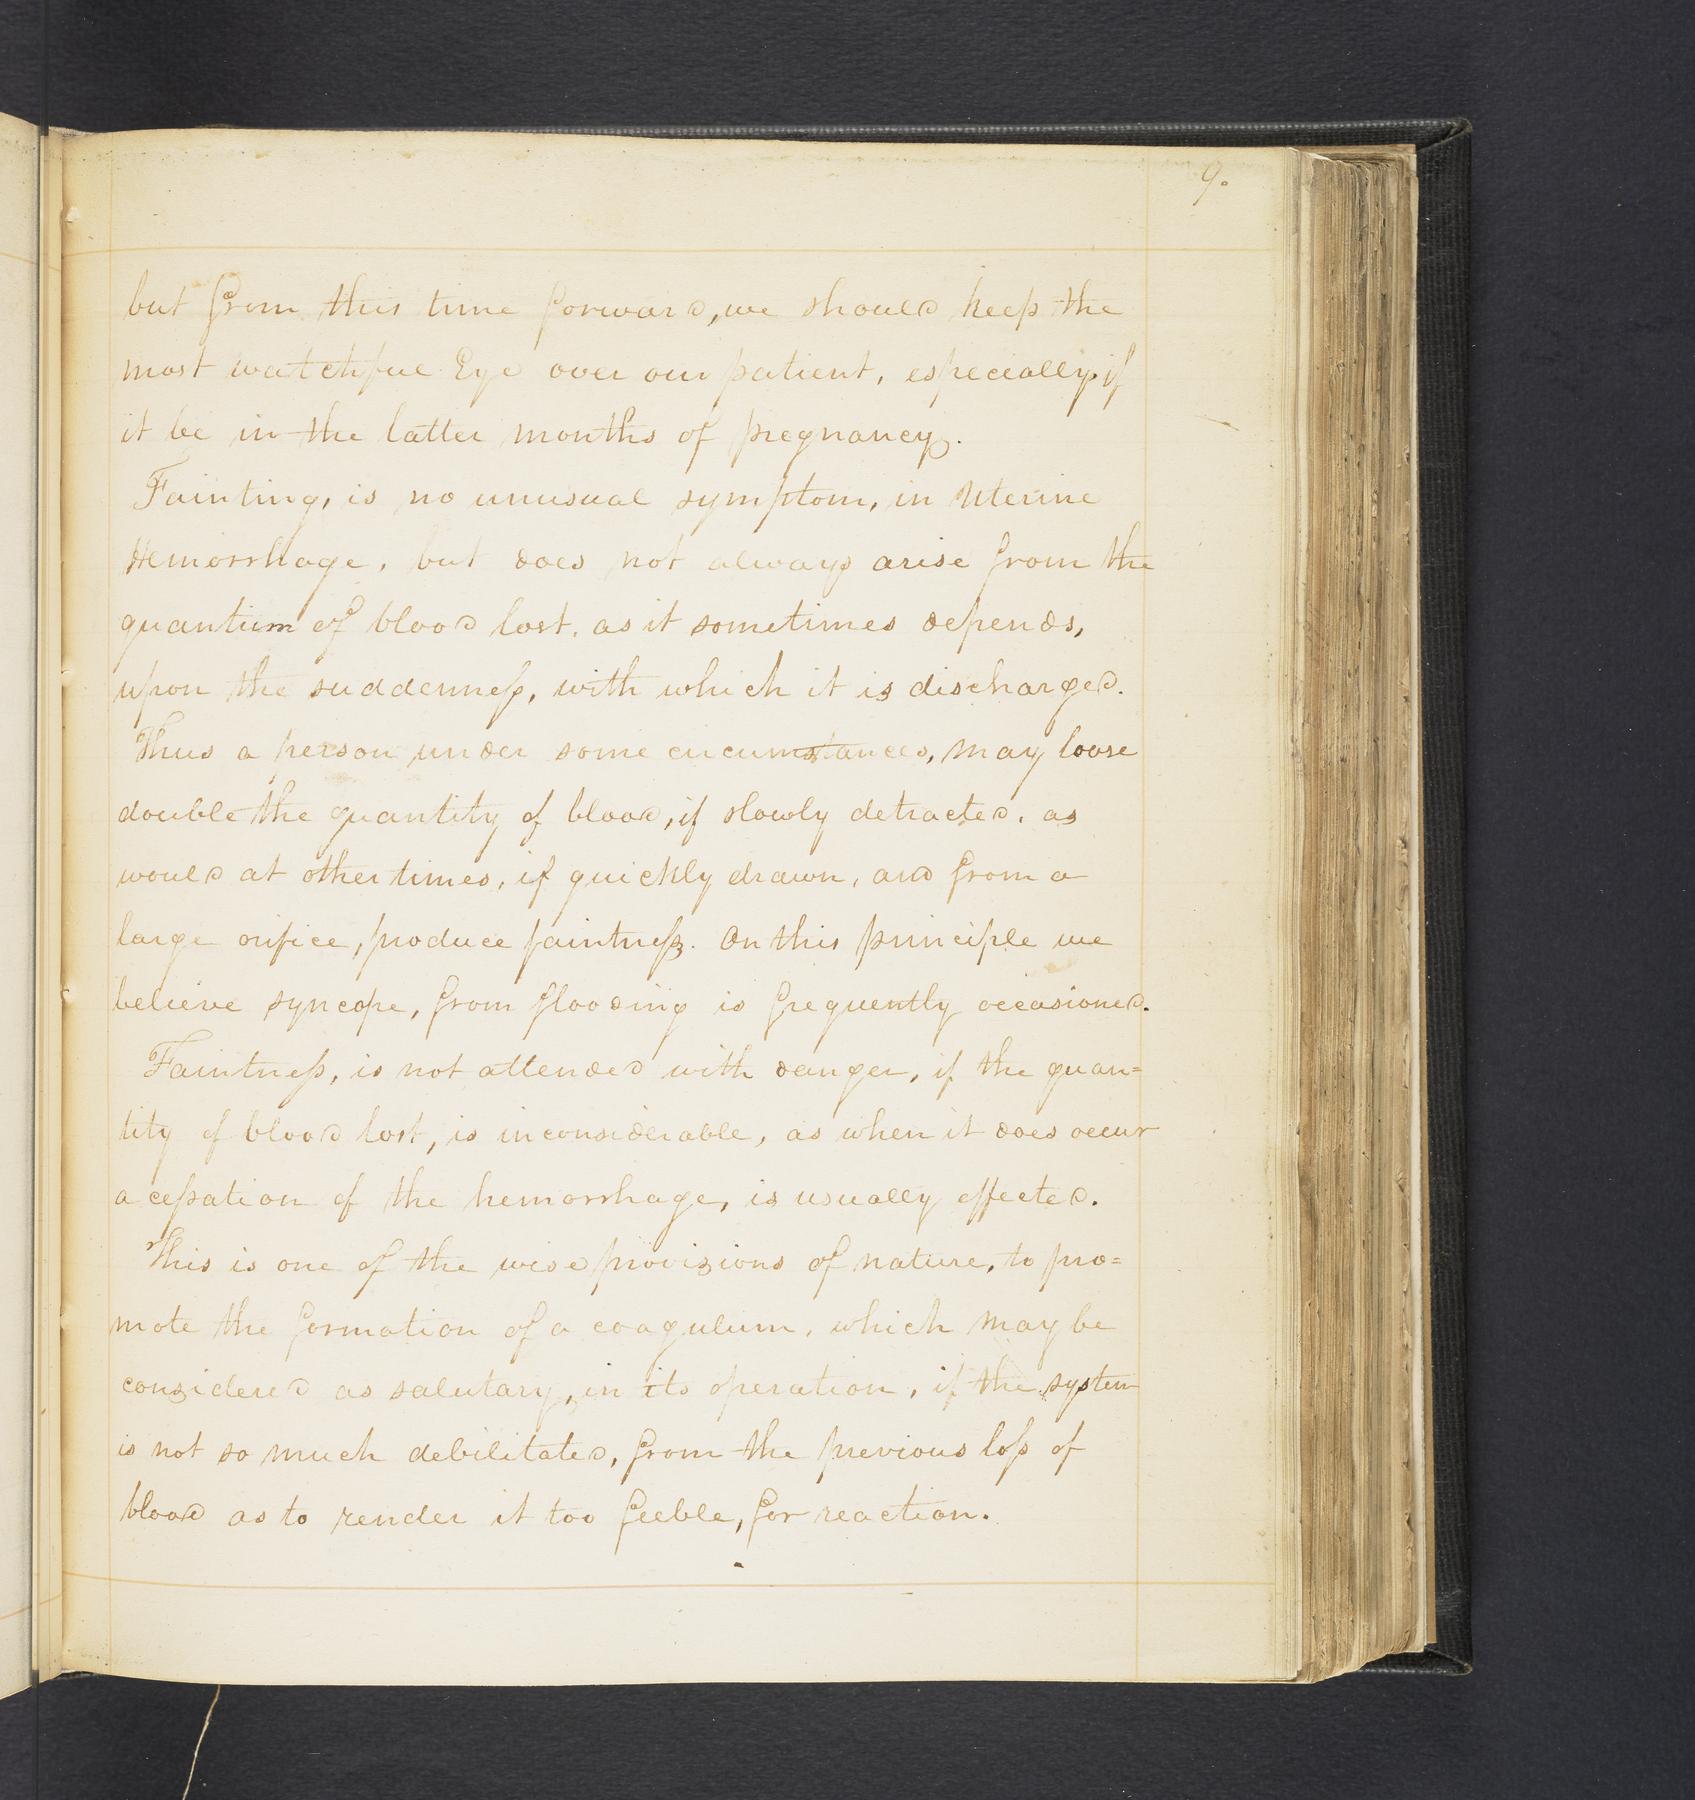 9.
but from this time forward, we should keep the
most watchful Eye over our patient, especially if
it be in the latter months of pregnancy.
Fainting, is no unusual symptom, in Uterine
Hemorrhage, but does not always arise from the
quantum of blood lost. as it sometimes depends,
upon the suddenneſs, with which it is discharged.
Thus a person under some circumstances, may loose
double the quantity of blood, if slowly detracted. as
would at other times, if quickly drawn, and from a
large orifice, produce faintneſs. On this principle we
believe syncope, from flooding is frequently occasioned.
Faintneſs, is not attended with danger, if the quan=
tity of blood lost, is inconsiderable, as when it does occur
a ceſsation of the hemorrhage, is usually effected.
This is one of the wise provisions of nature, to pro=
mote the formation of a coagulum, which may be
considered as salutary, in its operation, if the system
is not so much debilitated, from the previous loſs of
blood as to render it too feeble, for reaction.